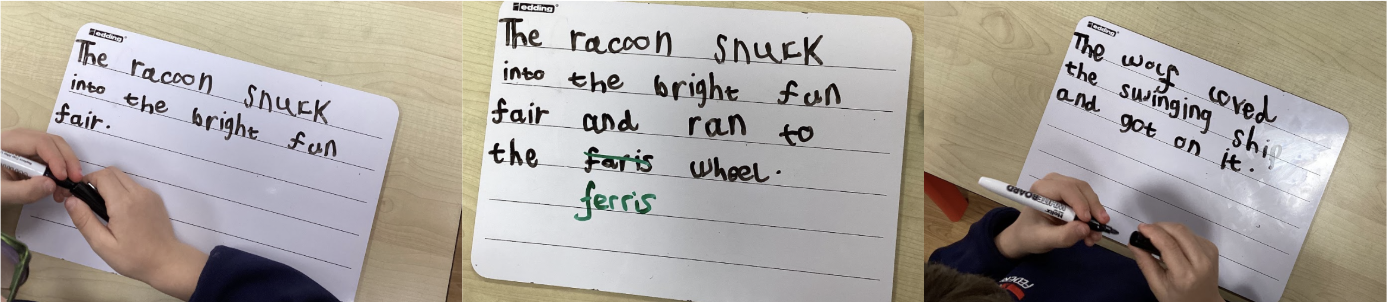 edding
The racoon snuck
into the bright fun
fair.
edding
The racoon snuck
into the bright fun
fair and ran to
the faris wheel.
ferris
edding
The wolf loved
the swinging ship
and got on it.